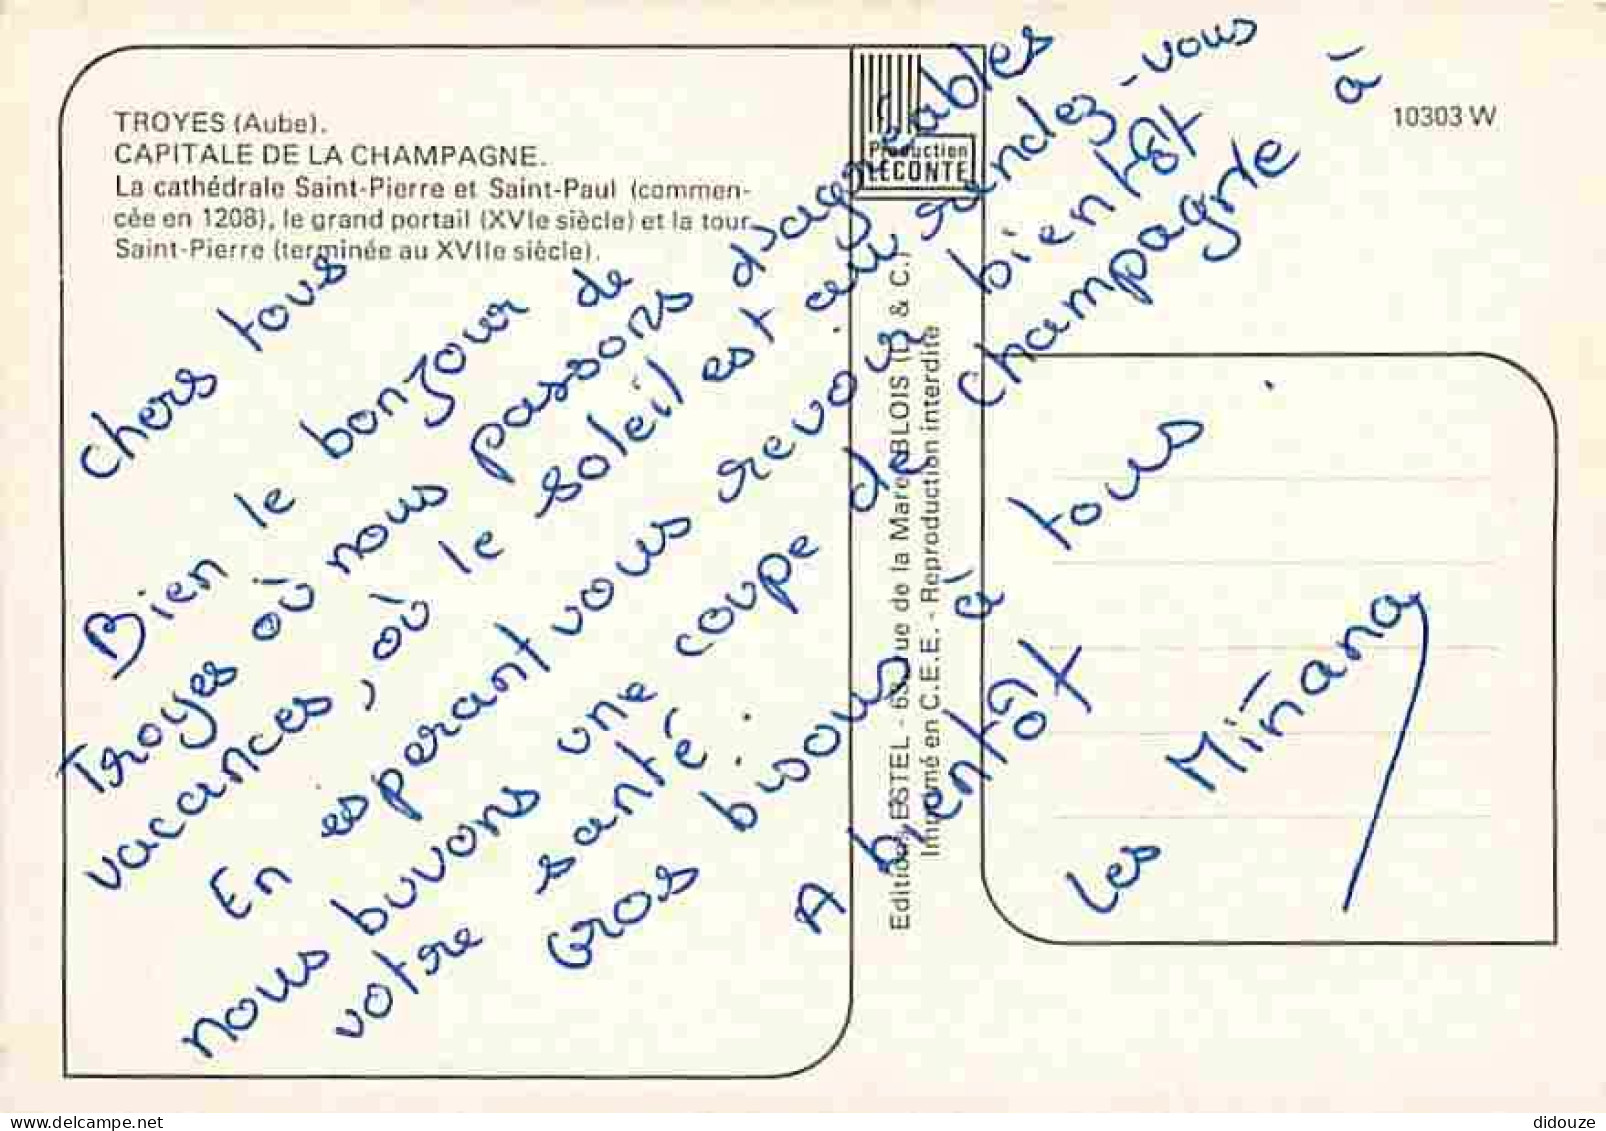 TROYES (Aube).
CAPITALE DE LA CHAMPAGNE.
La cathédrale Saint-Pierre et Saint-Paul (commen-
cée en 1208), le grand portail (XVIe siècle) et la tour
Saint-Pierre (terminée au XVIIe siècle).
Production
LECONTE
10303 W
Chers tous
Bien le bonjour de
Troyes où nous passons d'agréables
vacances, où le soleil est au rendez-vous
En esperant vous revoir bientôt à
nous buvons une coupe de champagne à
votre santé.
Gros bisous à tous.
A bientôt
Les Miñana
Editions ESTEL - 63, rue de la Mare BLOIS (L. & C.)
Imprimé en C.E.E. - Reproduction interdite
didouze